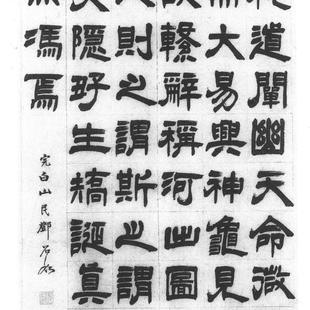 道闡幽天命微
大易興神龜見
繫辭稱河出圖
則之謂斯之謂
隱好生矯誕真
馮焉
完白山民鄧石如